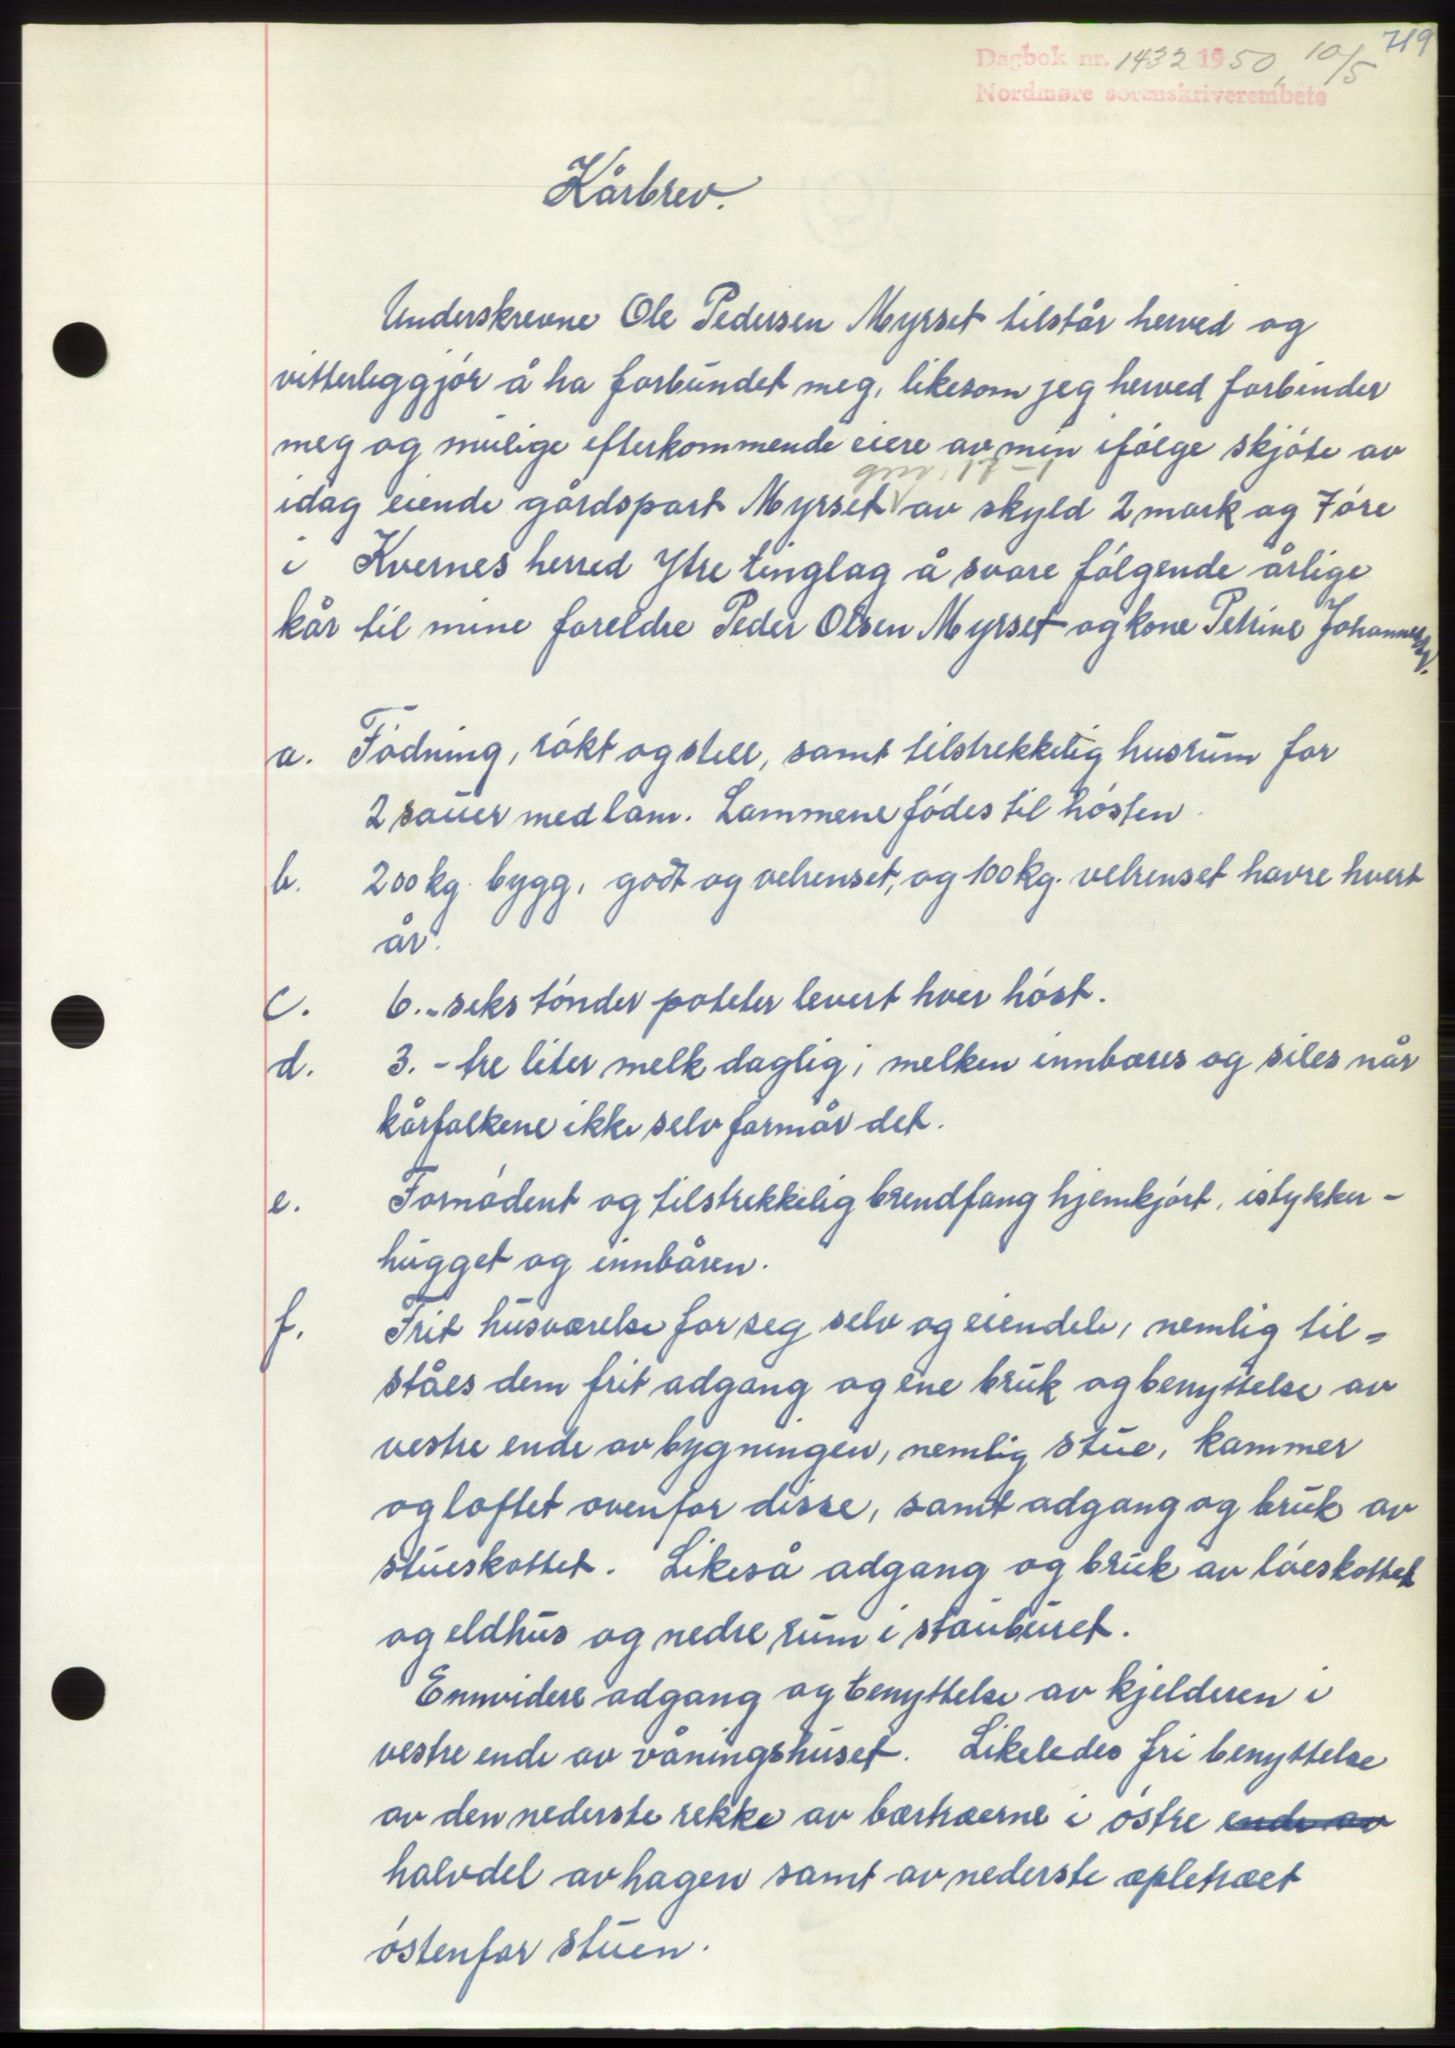 719
Dagbok nr. 1432 1950, 10/5
Nordmøre sorenskriverembete
Kårbrev.
Underskrevne Ole Pedersen Myrset tilstår herved og
vitterleggjór å ha forbundet meg, likesom jeg herved forbinder
meg og mulige efterkommende eiere av min ifólge skjóte av
gnr. 17-1
idag eiende gårdspart Myrset av skyld 2 mark og 7 óre
i Kvernes herred Ytre tinglag å svare fólgende årlige
kår til mine foreldre Peder Olsen Myrset og kone Petrine Johannesdtr.
a. Fódning, rókt og stell, samt tilstrekkelig husrum for
2 sauer med lam. Lammene fódes til hósten.
b. 200 kg. bygg, godt og velrenset, og 100 kg. velrenset havre hvert
år.
c. 6.- seks tónder poteter levert hver hóst.
d. 3.- tre liter melk daglig; melken innbæres og siles når
kårfolkene ikke selv formår det.
e. Fornódent og tilstrekkelig brendfang hjemkjórt, istykker-
hugget og innbåren.
f. Frit husværelse for seg selv og eiendele, nemlig til=
ståes dem frit adgang og ene bruk og benyttelse av
vestre ende av bygningen, nemlig stue, kammer
og loftet ovenfor disse, samt adgang og bruk av
stueskottet. Likeså adgang og bruk av lóeskottet
og eldhus og nedre rum i stauburet.
Ennvidere adgang og benyttelse av kjelderen i
vestre ende av våningshuset. Likeledes fri benyttelse
av den nederste rekke av bærtræerne i óstre ende av
halvdel av hagen samt av nederste æpletræet
óstenfor stuen.